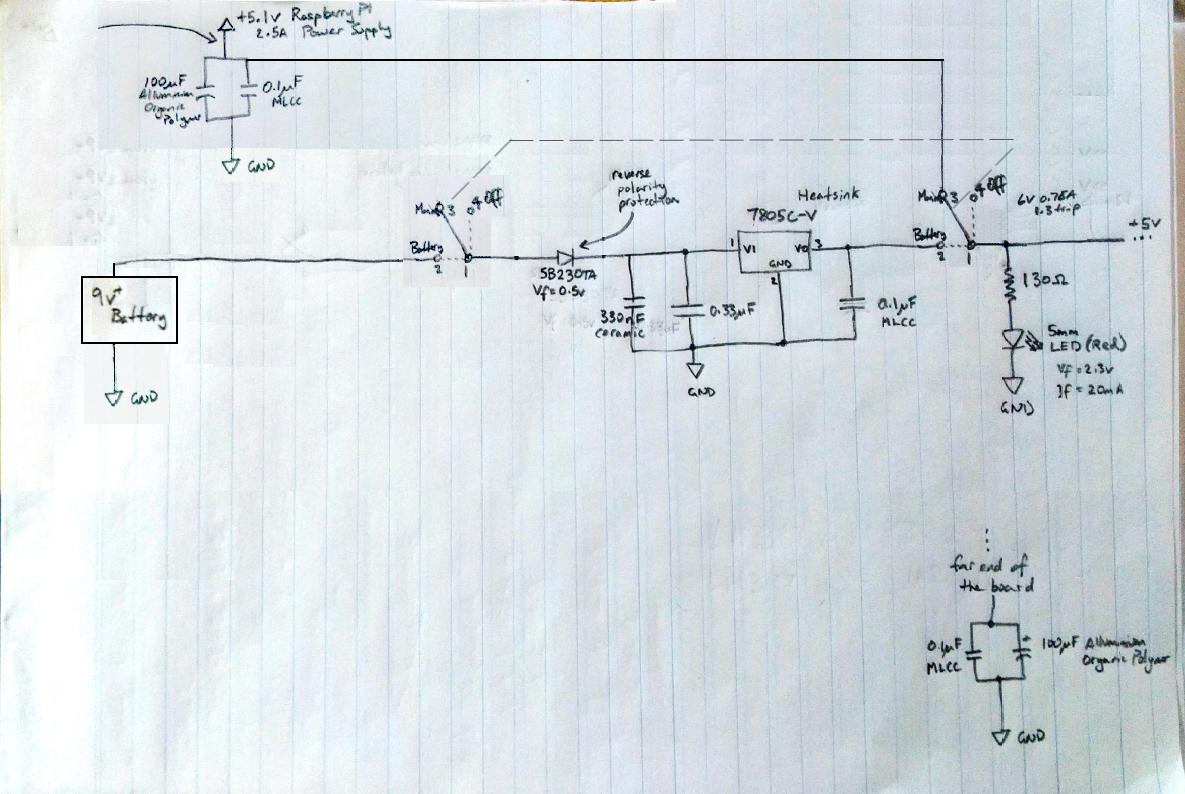 +5.1V Raspberry Pi
2.5A Power Supply
100μF
Alluminium
Organic
Polymer
0.1μF
MLCC
GND
9V +
Battery
GND
Mains 3
4 Off
Battery
2
1
reverse
polarity
protection
SB230TA
Vf=0.5v
330nF
ceramic
0.33μF
GND
Heatsink
7805C-V
1
VI
VO
3
GND
2
0.1μF
MLCC
Mains 3
4 Off
Battery
2
1
6V 0.75A
+5V
...
130Ω
5mm
LED (Red)
Vf = 2.3v
If = 20mA
GND
far end of
the board
0.1μF
MLCC
+
100μF Alluminium
Organic Polymer
GND